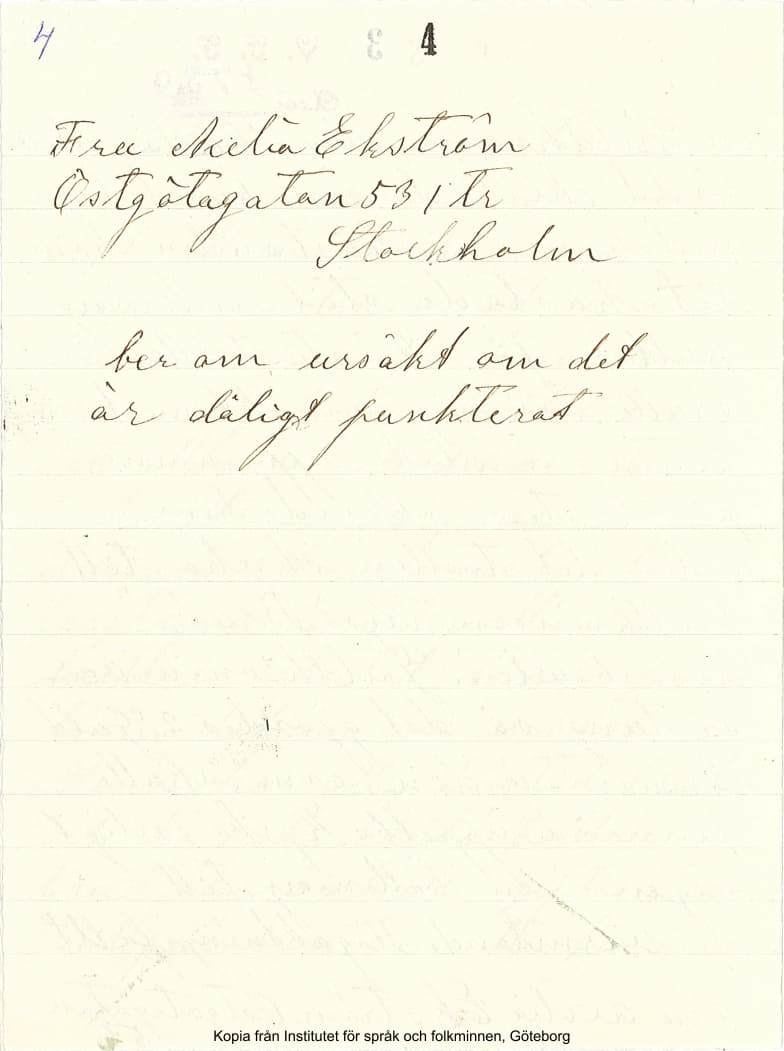 4 4
Fru Ekström
Östgötagatan 53 1 tr
Stockholm
ber om ursäkt om det
är dåligt punkterat
Kopia från Institutet för språk och folkminnen, Göteborg